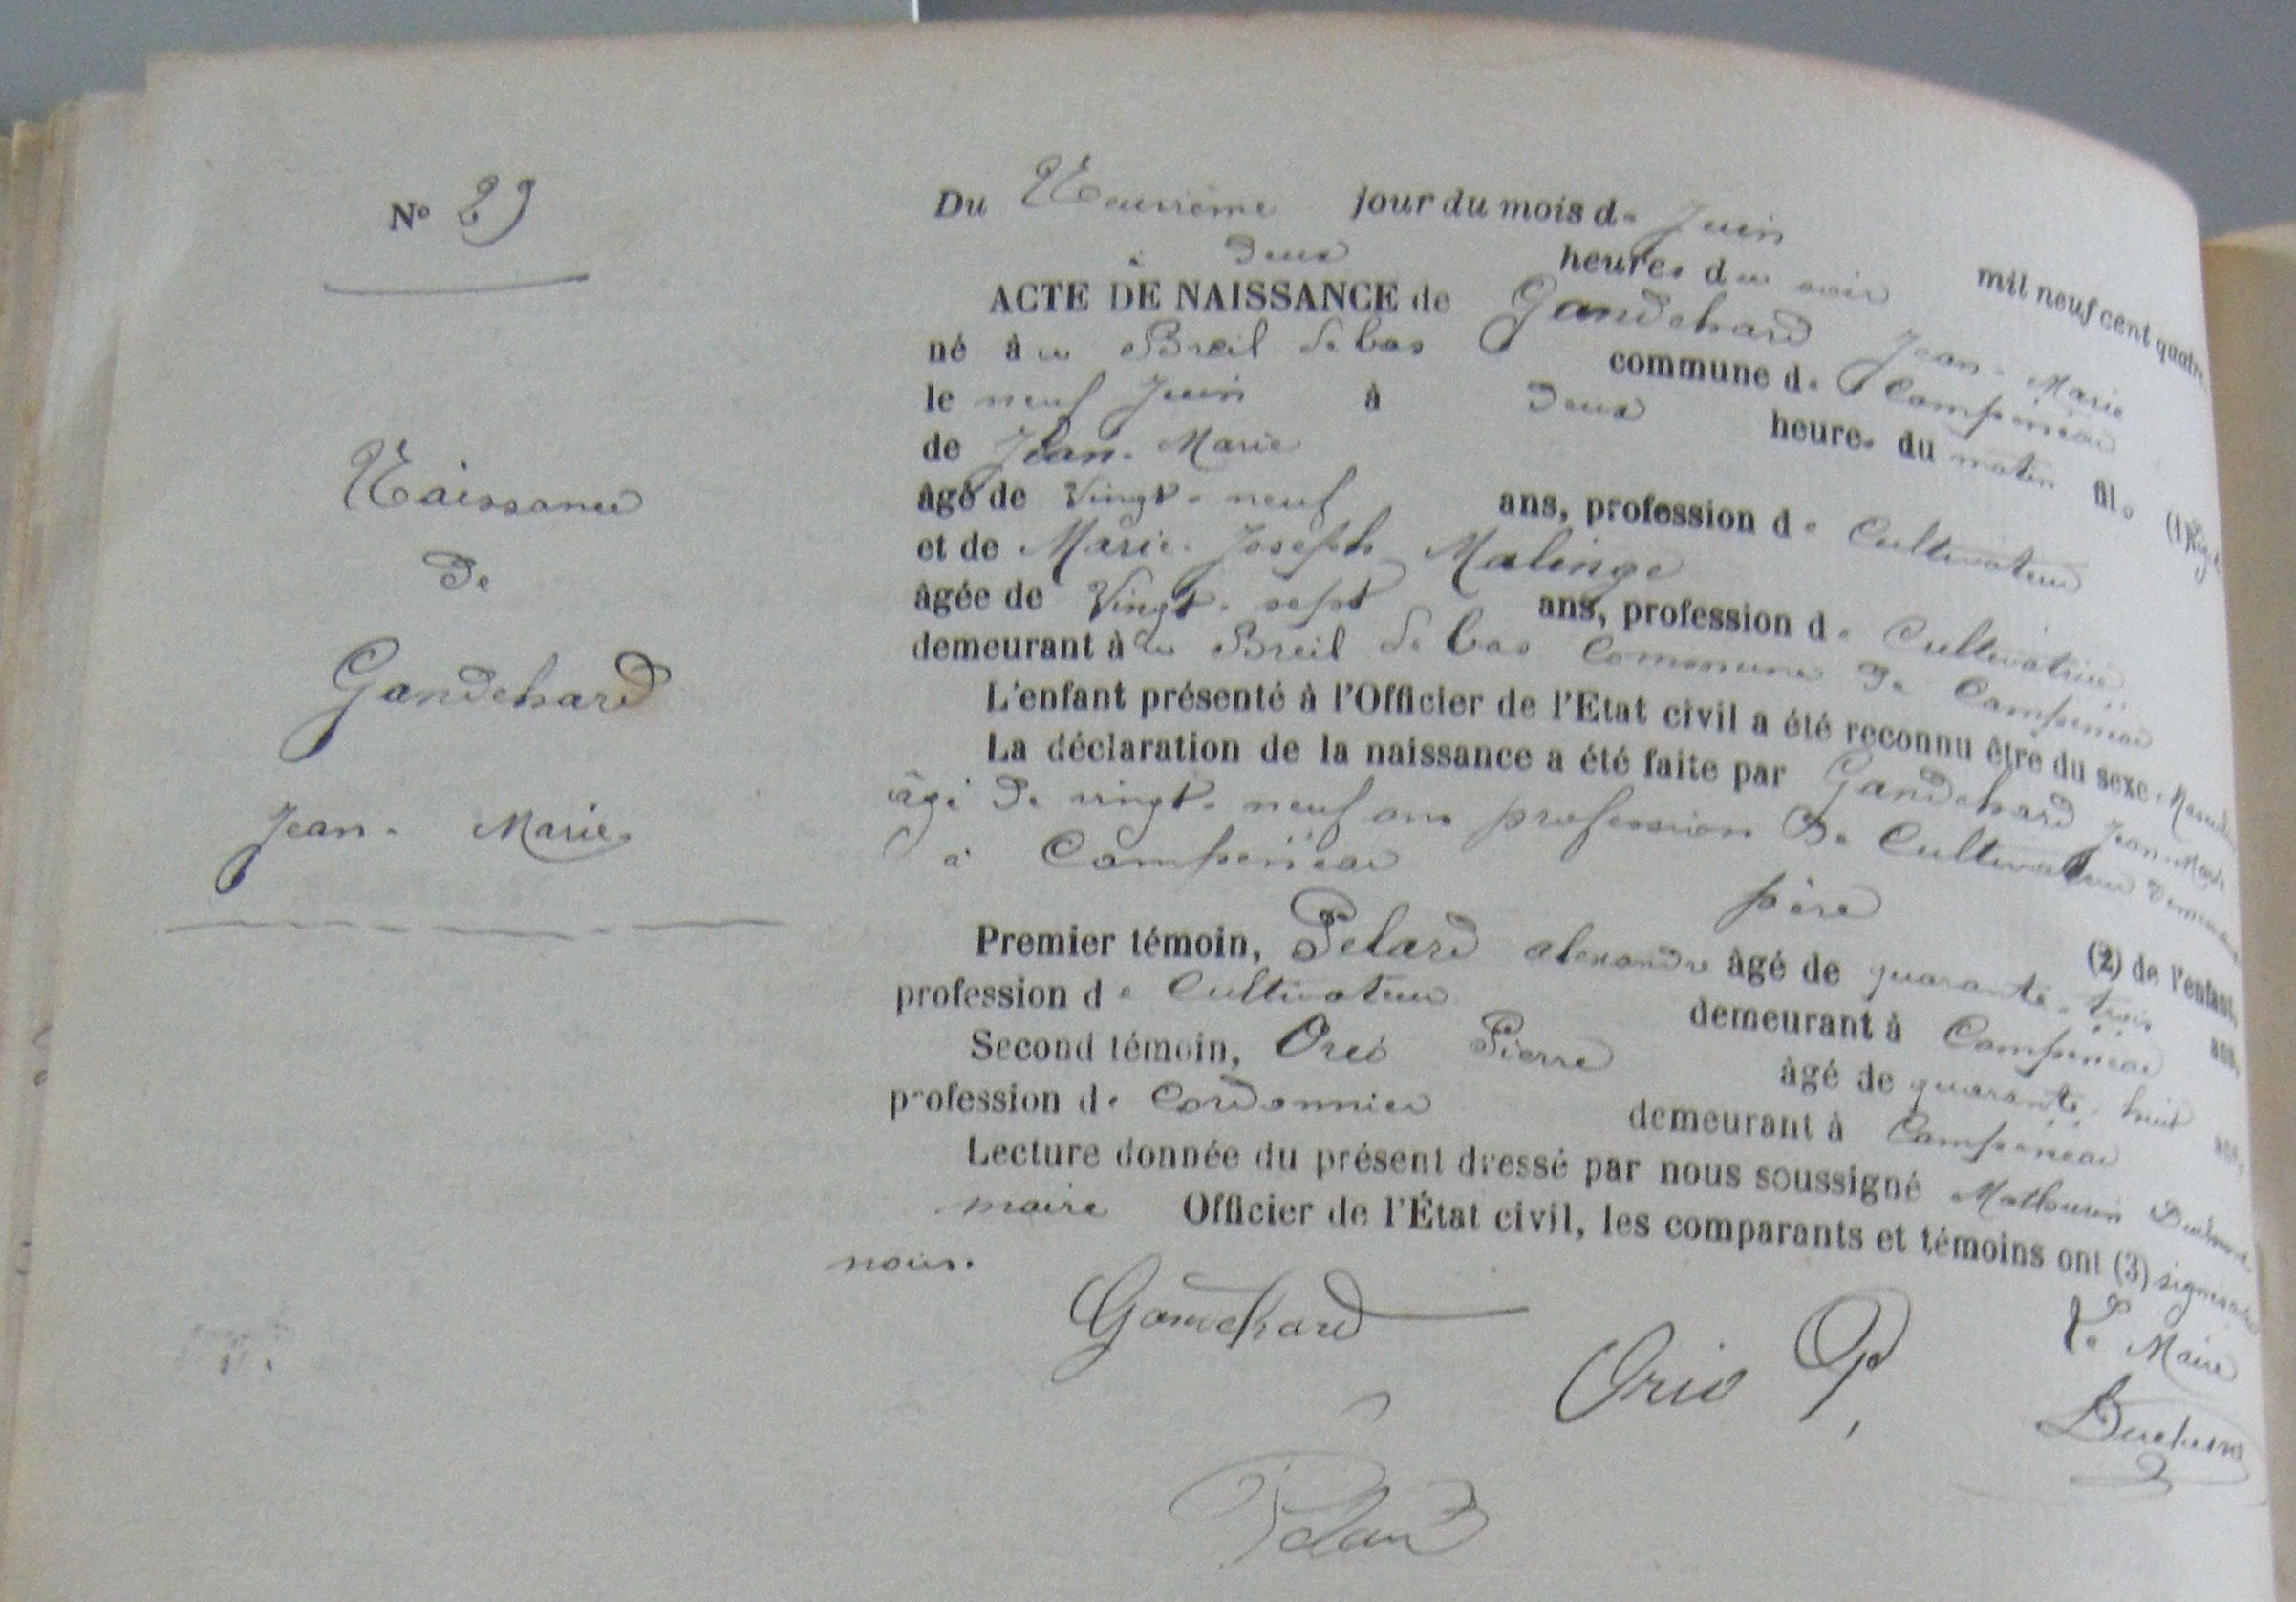 N° 29
Naissance
de
Gandehard
Jean-Marie
Du Neuvième jour du mois de Juin mil neuf cent quatre
à deux heures du soir
ACTE DE NAISSANCE de Gandehard Jean-Marie
né au Breil de bas commune de Campénéac
le neuf Juin à deux heures du matin fils (1)
de Jean-Marie
âgé de Vingt-neuf ans, profession de Cultivateur
et de Marie-Joseph Malinge
âgée de Vingt-sept ans, profession de Cultivatrice
demeurant au Breil de bas Commune de Campénéac
L'enfant présenté à l'Officier de l'Etat civil a été reconnu être du sexe Masculin
La déclaration de la naissance a été faite par Gandehard Jean-Marie
âgé de vingt-neuf ans profession de Cultivateur demeurant
à Campénéac père (2) de l'enfant.
Premier témoin, Pelard alexandre âgé de quarante-trois ans,
profession de Cultivateur demeurant à Campénéac
Second témoin, Orio Pierre âgé de quarante-huit ans,
profession de Cordonnier demeurant à Campénéac
Lecture donnée du présent dressé par nous soussigné Mathurin
maire Officier de l'État civil, les comparants et témoins ont (3) signé avec
nous.
Gandehard
Orio P.
Le Maire
Pelard